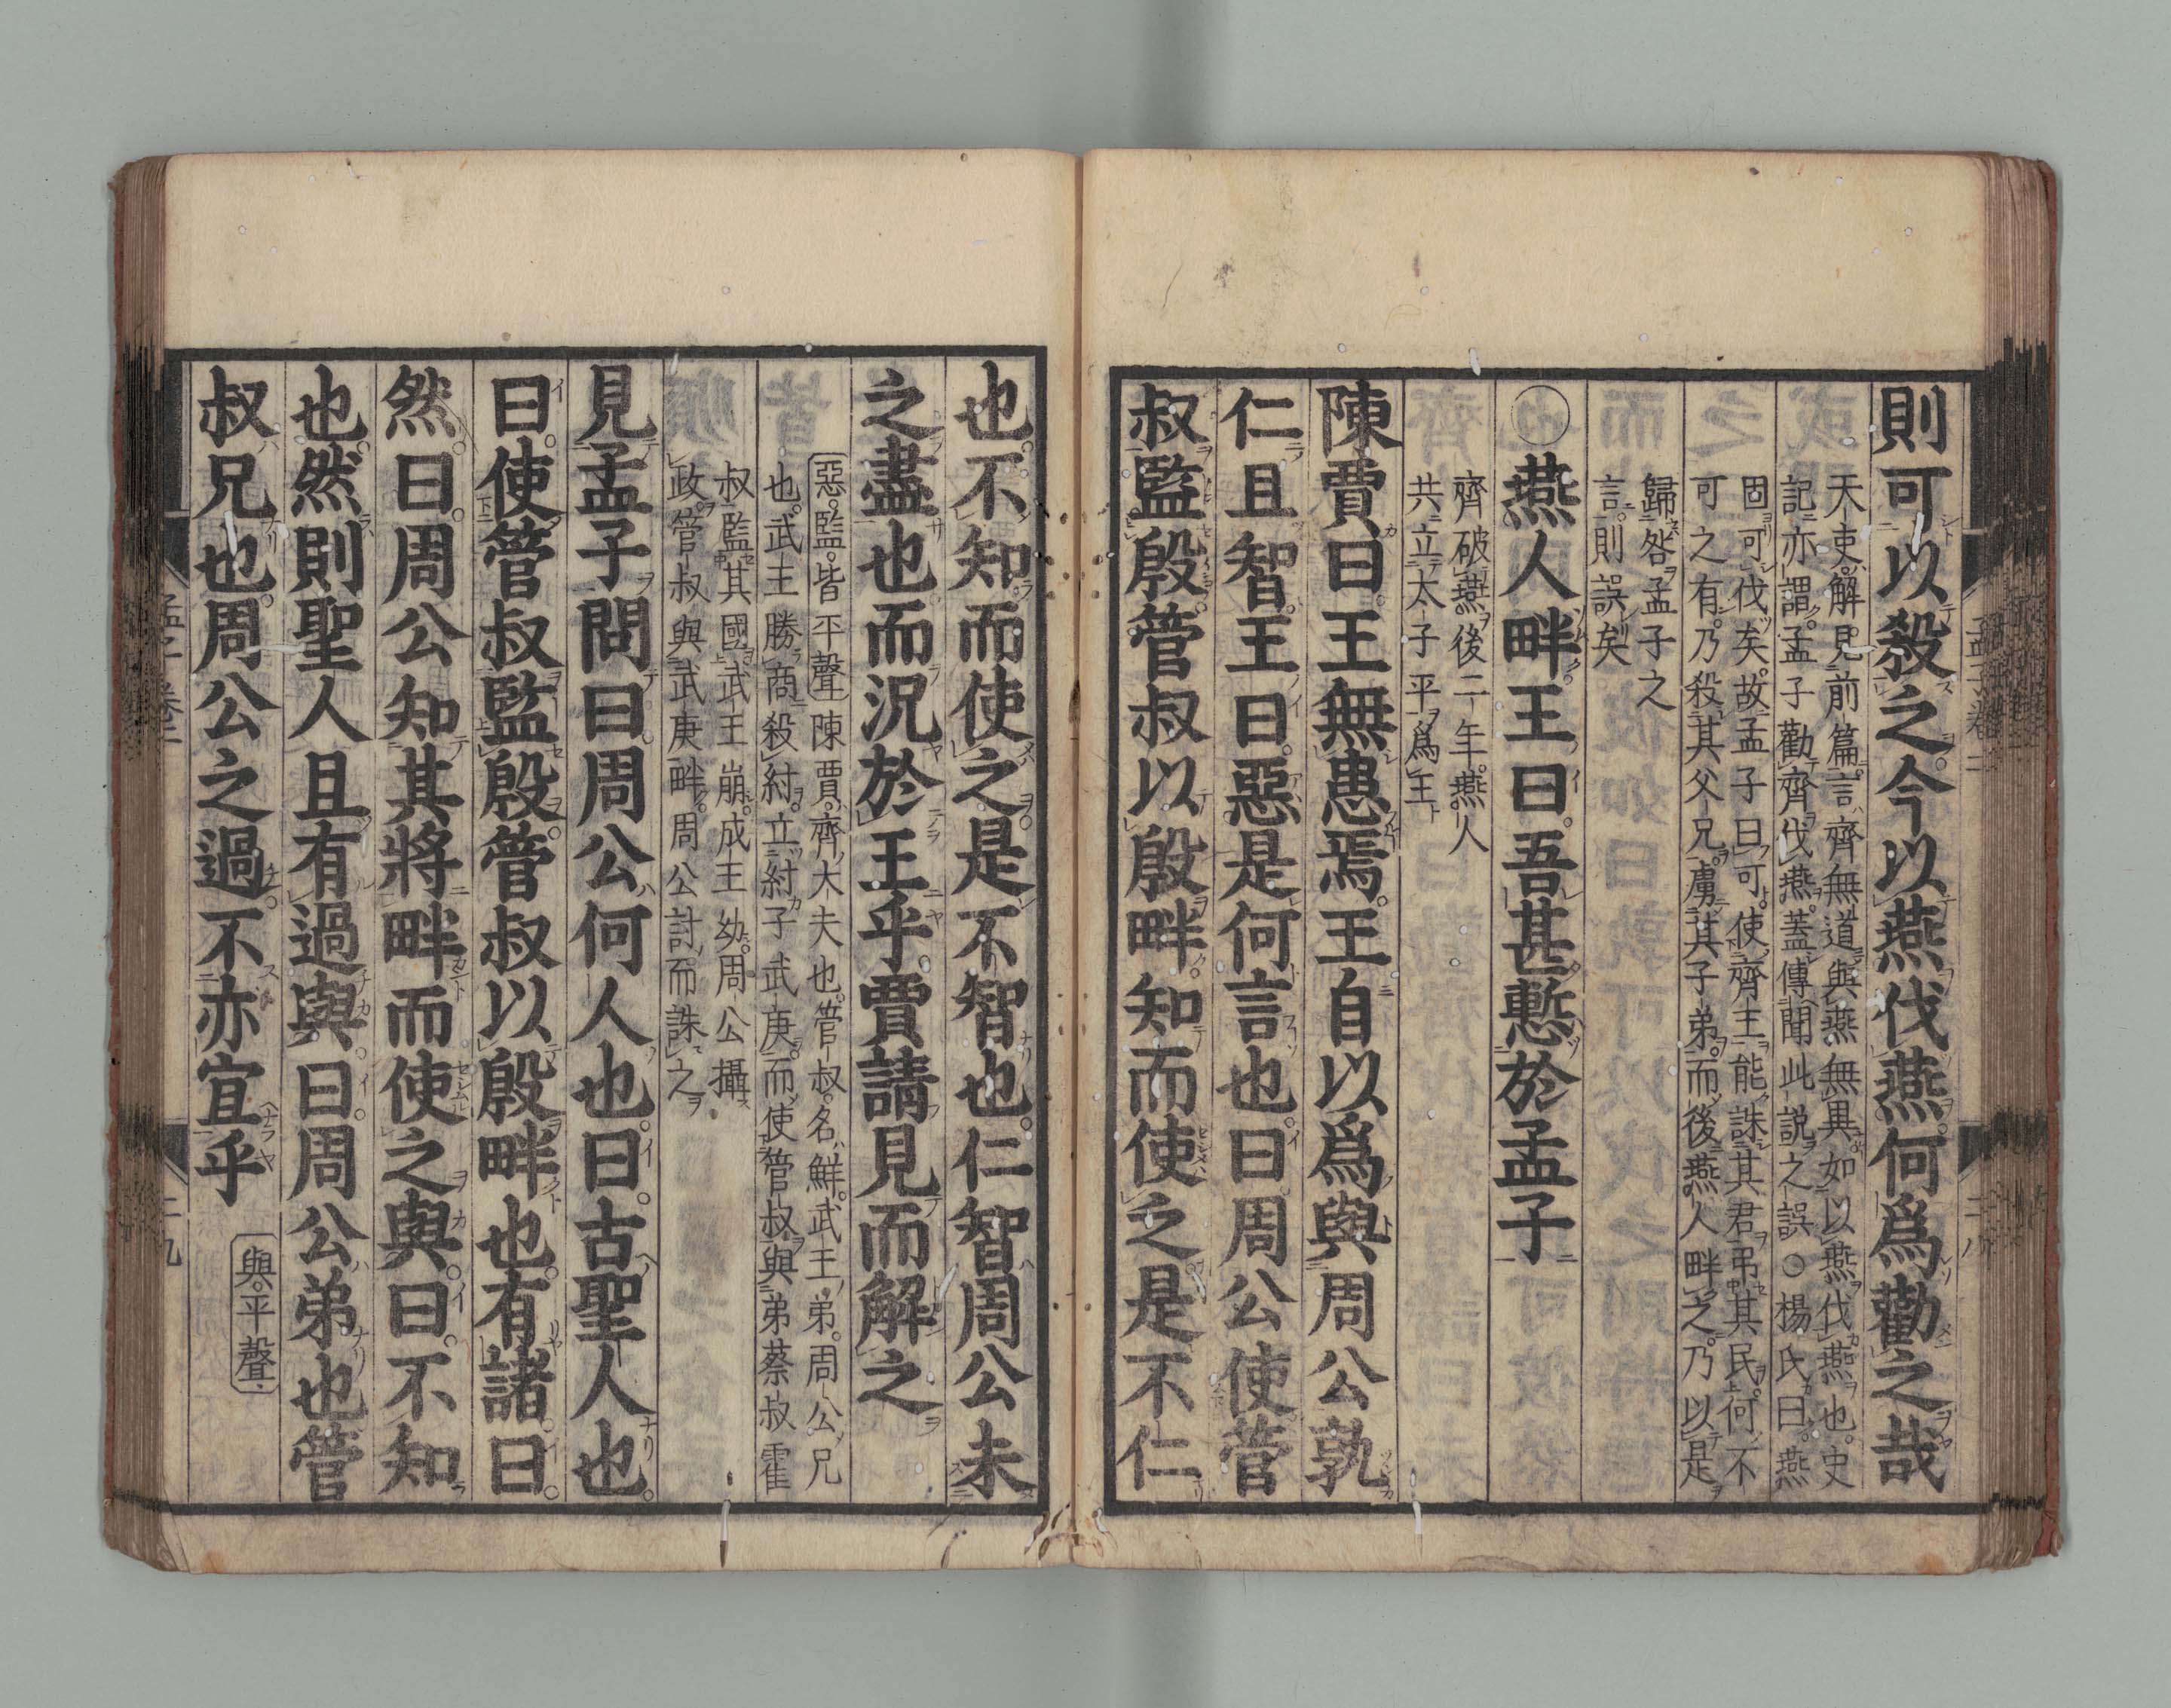 則可以殺之今以燕伐燕何爲勸之哉
天吏解見前篇言齊無道與燕無異如以燕伐燕也史
記亦謂孟子勸齊伐燕蓋傳聞此說之誤○楊氏曰燕
固可伐矣故孟子曰可使齊王能誅其君弔其民何不
可之有乃殺其父兄虜其子弟而後燕人畔之乃以是
歸咎孟子之
言則誤矣
○燕人畔王曰吾甚慙於孟子
齊破燕後二年燕人
共立太子平爲王
陳賈曰王無患焉王自以爲與周公孰
仁且智王曰惡是何言也曰周公使管
叔監殷管叔以殷畔知而使之是不仁
也不知而使之是不智也仁智周公未
之盡也而況於王乎賈請見而解之
惡監皆平聲陳賈齊大夫也管叔名鮮武王弟周公兄
也武王勝商殺紂立紂子武庚而使管叔與弟蔡叔霍
叔監其國武王崩成王幼周公攝
政管叔與武庚畔周公討而誅之
見孟子問曰周公何人也曰古聖人也
曰使管叔監殷管叔以殷畔也有諸曰
然曰周公知其將畔而使之與曰不知
也然則聖人且有過與曰周公弟也管
叔兄也周公之過不亦宜乎
與平聲
孟子卷二
二九